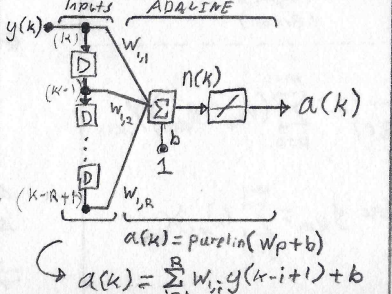 Inputs ADALINE
y(k)
(k)
D
(k-1)
D
D
(k-R+1)
W1,1
W1,2
W1,R
Σ
b
1
n(k)
a(k)
a(k) = purelin(Wp+b)
a(k) = Σ W1,i y(k-i+1) + b
R